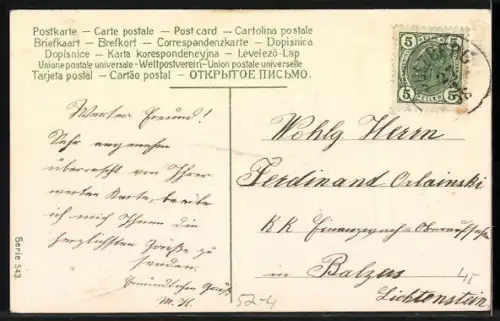 Postkarte – Carte postale – Post card – Cartolina postale
Briefkaart – Brefkort – Correspondenzkarte – Dopisnica
Dopisnice – Karta korespondencyjna – Levelező-Lap
Unione postale universale – Weltpostverein – Union postale universelle
Tarjeta postal – Cartão postal – ОТКРЫТОЕ ПИСЬМО.
5 5
5 HELLER 5
Werter Freund!
Sehr angenehm
überrascht von Ihrer
werten Karte, beeile
ich mich Ihnen die
herzlichsten Grüße zu
senden.
Freundlichen Gruß
M. H.
Wohlg Herrn
Ferdinand Orlainski
KK Finanzwach-Oberaufseher
in Balzers
Lichtenstein
Serie 543.
52-4
45